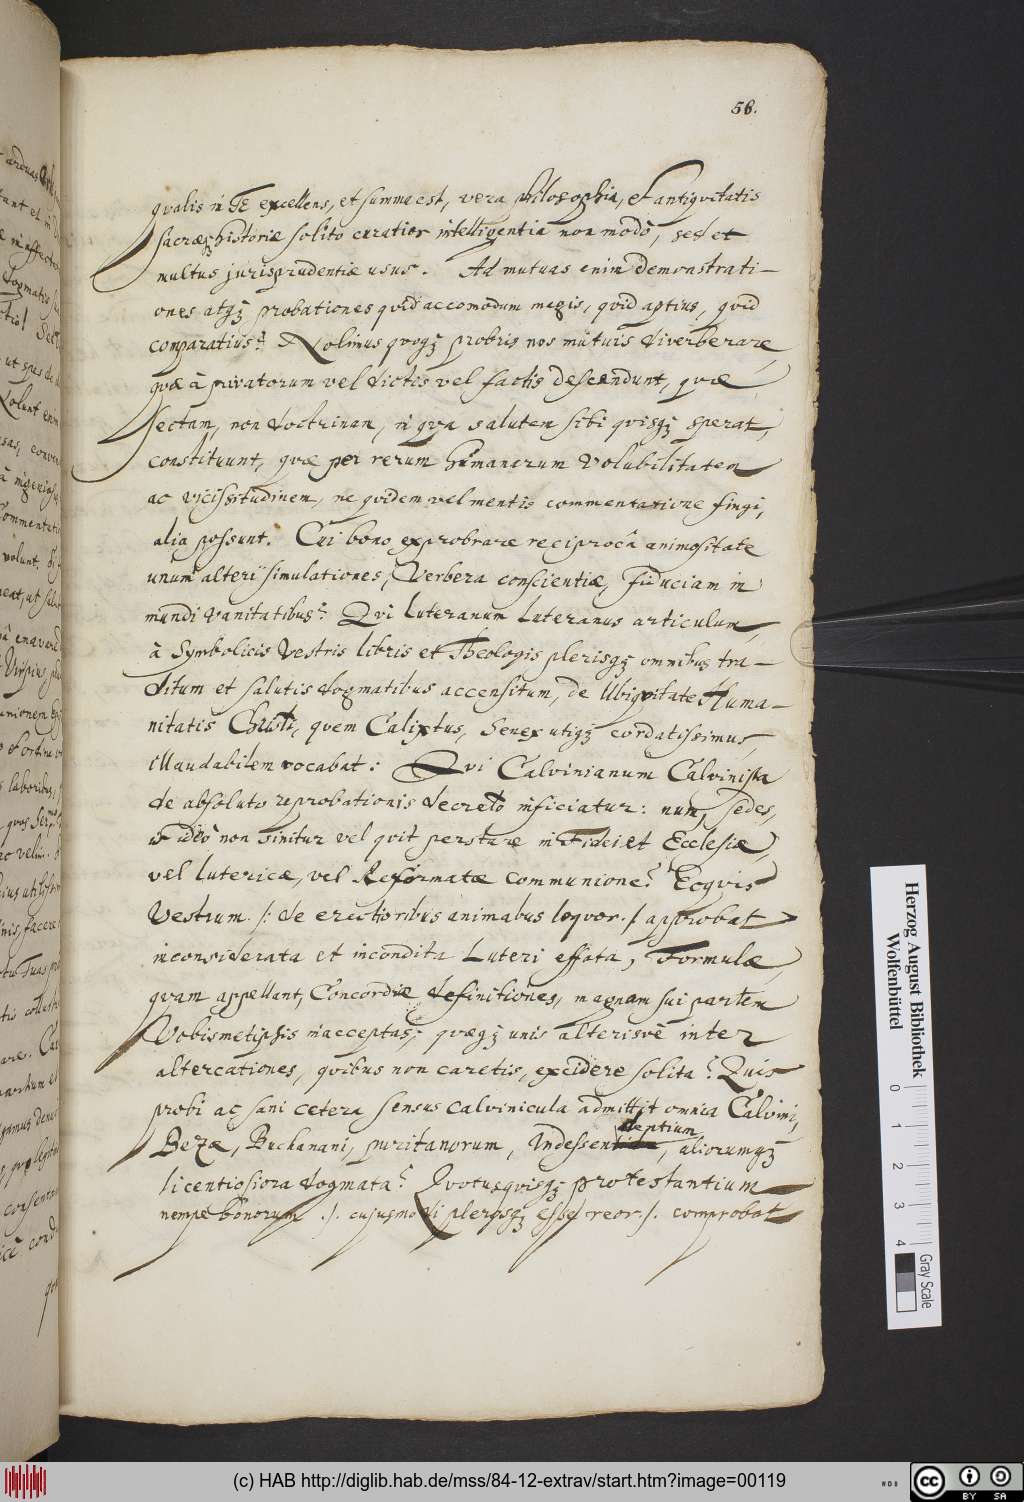 58.
qvalis in TE excellens, et summa est, vera philosophia, et antiqvitatis
sacræq; historiæ solito curatior intelligentia non modò, sed et
multus jurisprudentiæ usus. Ad mutuas enim demonstrati-
ones atq; probationes qvid accomodum magis, qvid aptius, qvid
comparatius? Nolimus qvoq; probris nos mutuis diverberare,
qvæ à privatorum vel dictis vel factis descendunt, qvæ
sectam, non doctrinam, in qva salutem sibi qvisq; sperat,
constituunt, qvæ per rerum humanarum volubilitatem
ac vicissitudinem, ne qvidem vel mentis commentatione fingi,
alia possunt. Cui bono exprobrare reciprocâ animositate
unum alteri simulationes, Verbera conscientiæ, fiduciam in
mundi vanitatibus? Qvi Luteranum Luteranus articulum,
à Symbolicis Vestris libris et Theologis plerisq; omnibus tra-
ditum et salutis dogmatibus accensitum, de Ubiqvitate Huma-
nitatis Christi, qvem Calixtus, Senex utiq; cordatissimus,
illaudabilem vocabat: Qvi Calvinianum Calvinista
de absoluto reprobationis decreto inficiatur: num, sedes,
ideò non sinitur vel qvit perstare in Fidei et Ecclesiæ,
vel Lutericæ, vel Reformatæ communione? Ecqvis
Vestrum /: de erectioribus animabus loqvor :/ approbat
inconsiderata et incondita Luteri effata, Formulæ,
qvam appellant, Concordiæ definitiones, magnam sui partem
Vobismetipsis inacceptas, qvæq; unis alterisvè inter
altercationes, qvibus non caretis, excidere solita? Quis
probi ac sani cetera sensus Calvinicula admittit omnia Calvini,
deptium
Bezæ, Buchanani, puritanorum, Indessen, aliorumq;
licentiosiora dogmata? Qvotusqvisq; protestantium
nempe bonorum /: cujusmodi plerosq; esse reor :/ comprobat
(c) HAB http://diglib.hab.de/mss/84-12-extrav/start.htm?image=00119
Herzog August Bibliothek
Wolfenbüttel
0 1 2 3 4
Gray Scale
WDB
cc BY SA